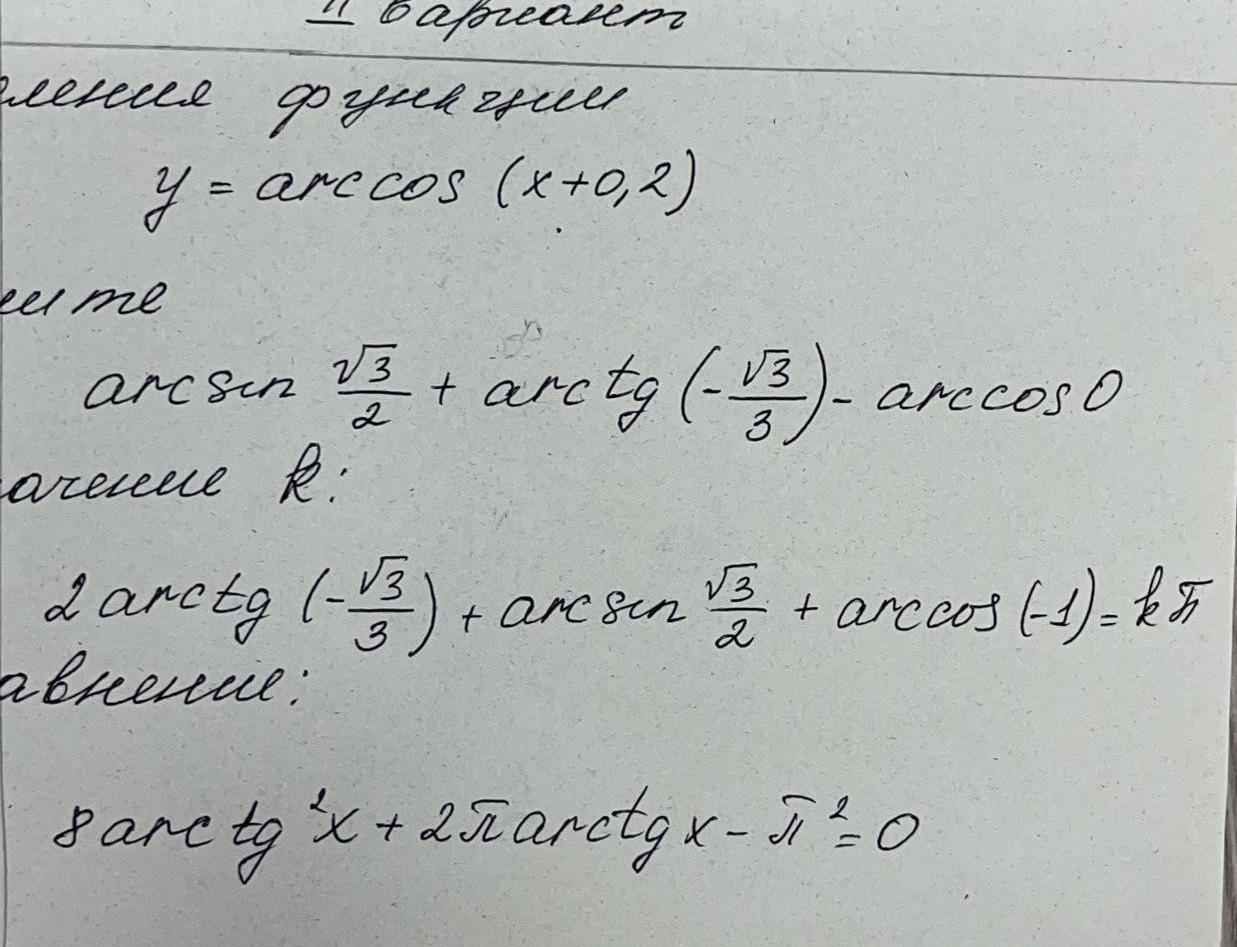 II вариант
ления функции
y = arccos (x+0,2)
ите
arcsin √3/2 + arctg (-√3/3) - arccos 0
ачение k:
2 arctg (-√3/3) + arcsin √3/2 + arccos (-1) = kπ
авнение:
8 arctg²x + 2π arctg x - π² = 0